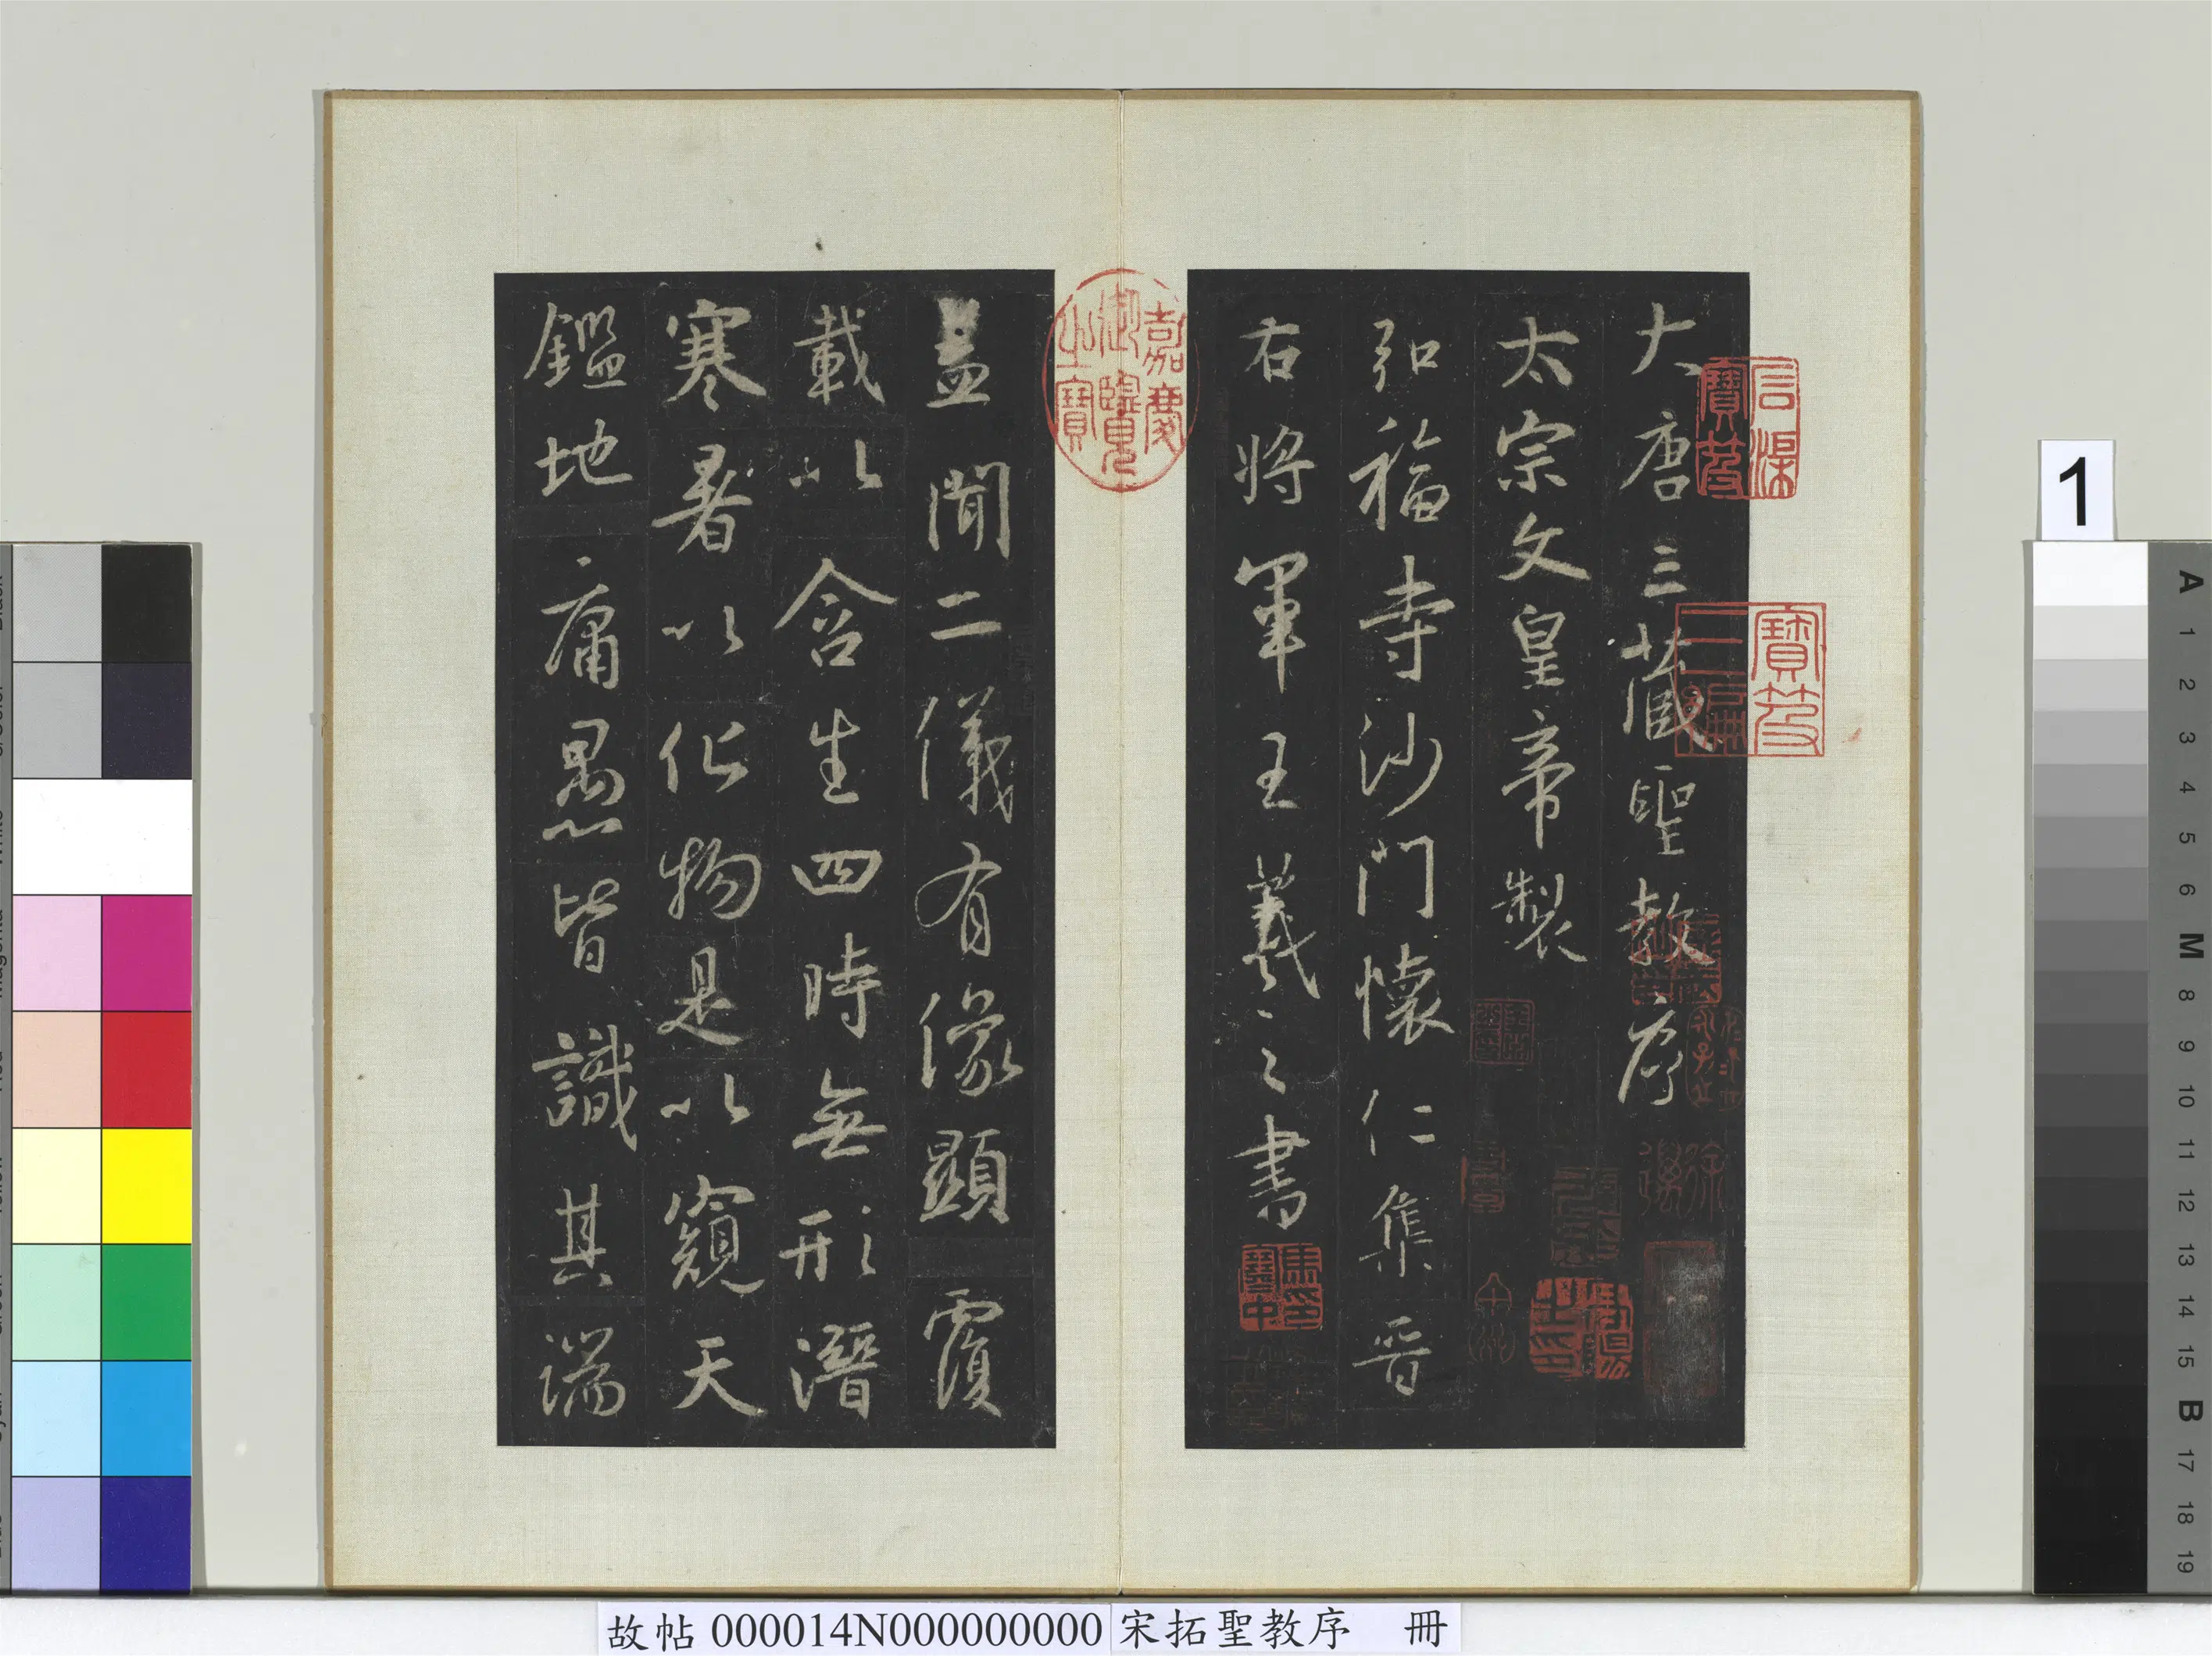 大唐三藏聖教序
太宗文皇帝製
弘福寺沙門懷仁集晉
右將軍王羲之書
蓋聞二儀有像顯覆
載以含生四時無形潛
寒暑以化物是以窺天
鑑地庸愚皆識其端
嘉慶御覽之寶
石渠寶笈
寶笈三編
故帖 000014N000000000 宋拓聖教序 冊
1
A
1
2
3
4
5
6
M
8
9
10
11
12
13
14
15
B
17
18
19